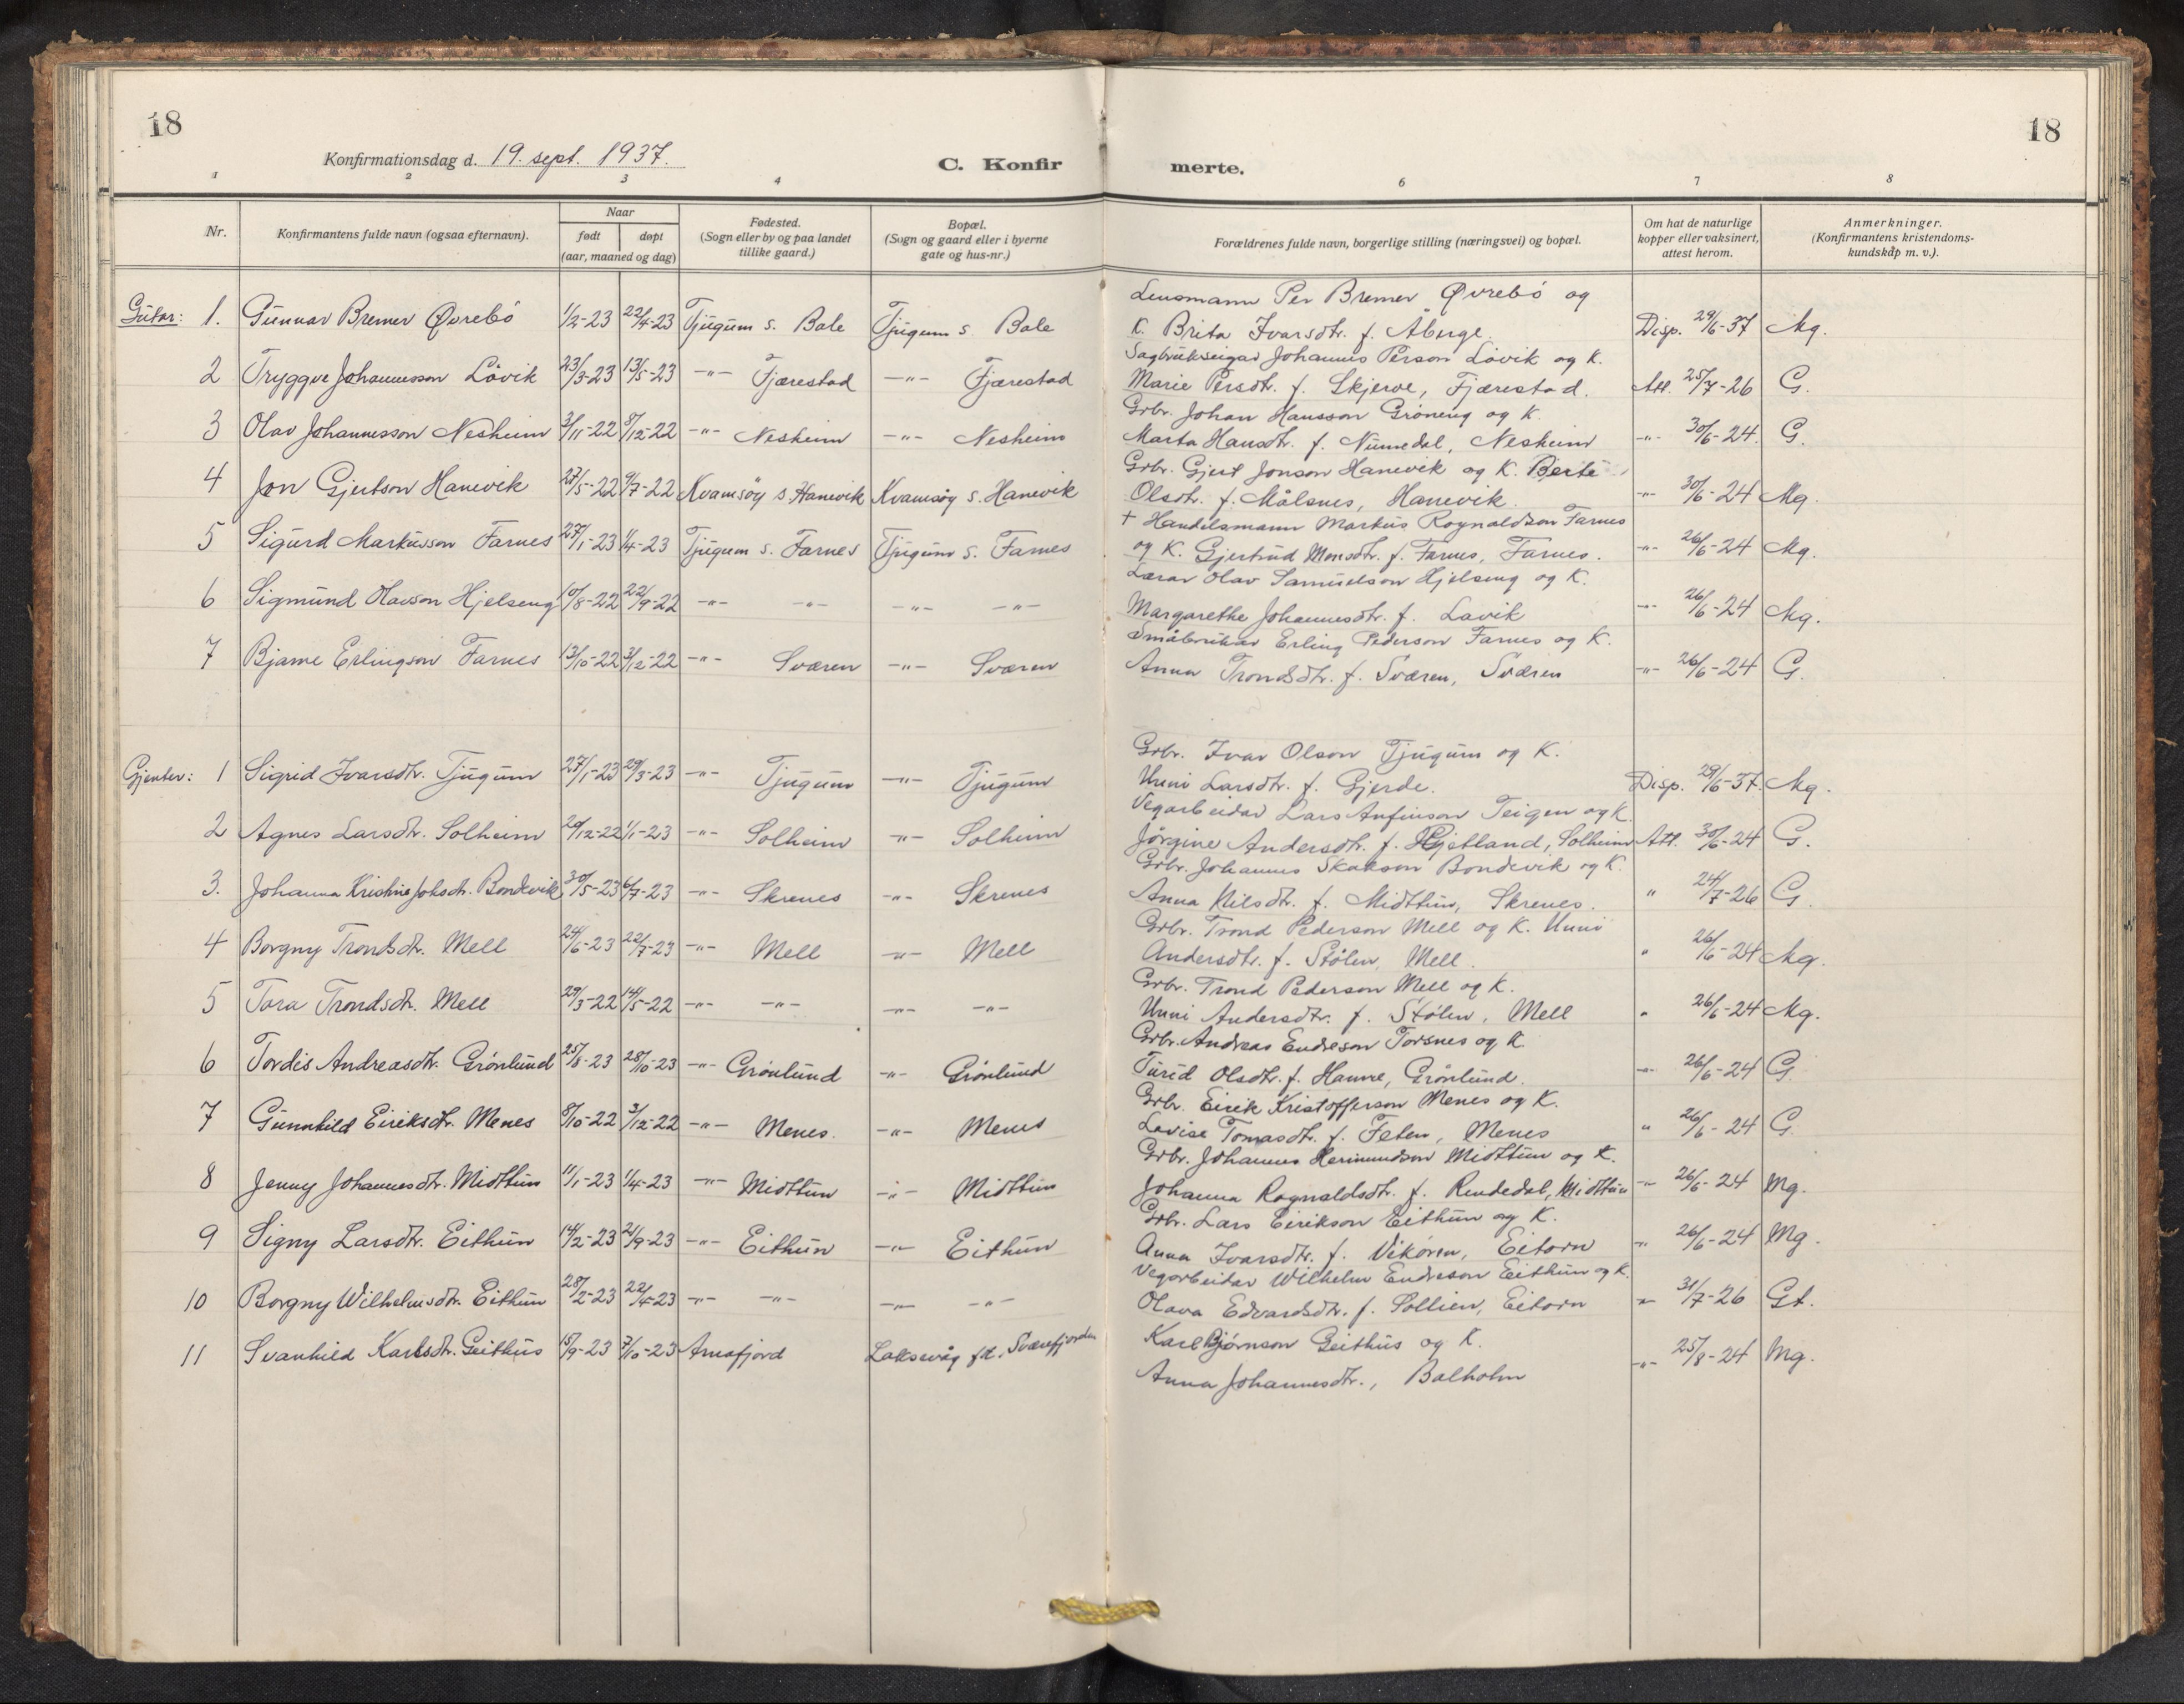 18
18
Konfirmationsdag d. 19. sept. 1937.
C. Konfir
merte.
1 2 3 4 6 7 8
Nr.
Konfirmantens fulde navn (ogsaa efternavn).
Naar
født døpt
(aar, maaned og dag)
Fødested.
(Sogn eller by og paa landet
tillike gaard.)
Bopæl.
(Sogn og gaard eller i byerne
gate og hus-nr.)
Forældrenes fulde navn, borgerlige stilling (næringsvei) og bopæl.
Om hat de naturlige
kopper eller vaksinert,
attest herom.
Anmerkninger.
(Konfirmantens kristendoms-
kundskap m. v.).
Lensmann Per Bremer Øvrebö og
Gutar: 1. Gunnar Bremer Øvrebö 1/2-23 22/4-23 Tjugum s. Bale Tjugum s. Bale K. Brita Ivarsdtr. f. Åberge. Disp. 29/6-37 Mg.
Sagbrukseigar Johannes Person Lövik og K.
2 Tryggve Johannesson Lövik 23/3-23 13/5-23 -"- Fjærestad -"- Fjærestad Marie Persdtr. f. Skjerve, Fjærestad. Att. 25/7-26 G.
Grbr. Johan Hansson Gröneng og K.
3 Olav Johannesson Nesheim 3/11-22 8/12-22 -"- Nesheim -"- Nesheim Marta Hansdtr. f. Numedal, Nesheim -"- 30/6-24. G.
Grbr. Gjert Jonson Hanevik og K. Berte
4 Jon Gjertson Hanevik 27/5-22 9/7-22 Kvamsöy s. Hanevik Kvamsöy s. Hanevik Olsdtr. f. Målsnes, Hanevik. -"- 30/6-24 Mg.
+ Handelsmann Markus Roynaldson Farnes
5 Sigurd Markusson Farnes 27/1-23 1/4-23 Tjugum s. Farnes Tjugum s. Farnes og K. Gjertrud Monsdtr. f. Farnes, Farnes. -"- 26/6-24 Mg.
Lærar Olav Samuelson Hjelseng og K.
6 Sigmund Olavson Hjelseng 10/8-22 22/9-22 -"- -"- -"- -"- Margarethe Johannesdtr. f. Lavik -"- 26/6-24 Mg.
Småbrukar Erling Pederson Farnes og K.
7 Bjarne Erlingson Farnes 13/10-22 3/12-22 -"- Sværen -"- Sværen Anna Trondsdtr. f. Sværen, Sværen -"- 26/6-24 G.
Grbr. Ivar Olson Tjugum og K.
Gjenter: 1 Sigrid Ivarsdtr. Tjugum 27/1-23 29/3-23 -"- Tjugum -"- Tjugum Unni Larsdtr. f. Gjerde. Disp. 29/6-37. Mg.
Vegarbeidar Lars Anfinson Teigen og K.
2 Agnes Larsdtr. Solheim 20/12-22 1/1-23 -"- Solheim -"- Solheim Jörgine Andersdtr. f. Hjetland, Solheim Att. 30/6-24 G.
Grbr. Johannes Skakson Bondevik og K.
3. Johanna Kristine Johsdtr. Bondevik 30/5-23 6/7-23 -"- Skrenes -"- Skrenes Anna Nilsdtr. f. Midttun, Skrenes. " 24/7-26 G.
Grbr. Trond Pederson Mell og K. Unni
4 Borgny Trondsdtr. Mell 24/6-23 22/7-23 -"- Mell -"- Mell Andersdtr. f. Stölen, Mell. " 26/6-24 Mg.
Grbr. Trond Pederson Mell og K.
5 Tora Trondsdtr. Mell 29/3-22 14/5-22 -"- -"- -"- -"- Unni Andersdtr. f. Stölen, Mell " 26/6-24 Mg.
Grbr. Andreas Endreson Torsnes og K
6 Tordis Andreasdtr. Grönlund 25/8-23 28/10-23 -"- Grönlund -"- Grönlund Turid Olsdtr. f. Hamre, Grönlund. -"- 26/6-24 G.
Grbr. Eirik Kristofferson Menes og K.
7 Gunnhild Eiriksdtr. Menes 8/10-22 3/12-22 -"- Menes. -"- Menes Lovise Tomasdtr. f. Feten, Menes " 26/6-24 G
Grbr. Johannes Hermundson Midttun og K.
8 Jenny Johannesdtr. Midttun 11/1-23 1/4-23 -"- Midttun -"- Midttun Johanna Ragnaldsdtr. f. Rendedal, Midttun -"- 26/6-24 Mg.
Grbr. Lars Eirikson Eithun og K.
9 Signy Larsdtr. Eithun 14/2-23 21/9-23 -"- Eithun -"- Eithun Anna Ivarsdtr. f. Vikören, Eitorn -"- 26/6-24 Mg.
Vegarbeidar Wilhelm Endreson Eithun og K.
10 Borgny Wilhelmsdtr. Eithun 28/2-23 22/4-23 -"- -"- -"- -"- Olava Edvardsdtr. f. Sollien, Eitorn -"- 31/7-26 Gt.
Karl Bjørnson Geithus og K.
11 Svanhild Karlsdtr. Geithus 15/9-23 7/10-23 Arnafjord Laksevåg Sværefjorden -"- 25/8-24 Mg.
Anna Johannesdtr., Balholm